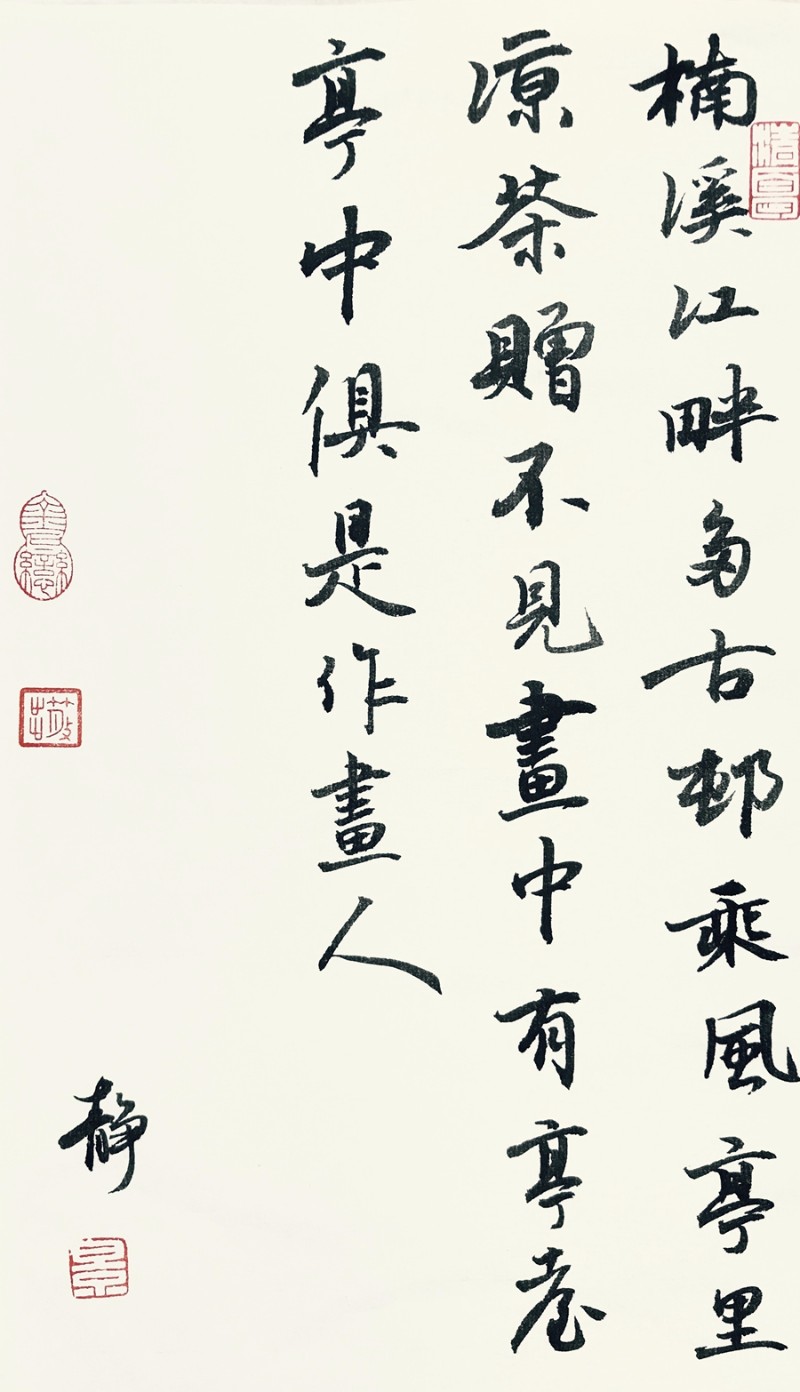 楠溪江畔多古邨乘風亭里
凉茶贈不見畫中有亭臺
亭中俱是作畫人
靜